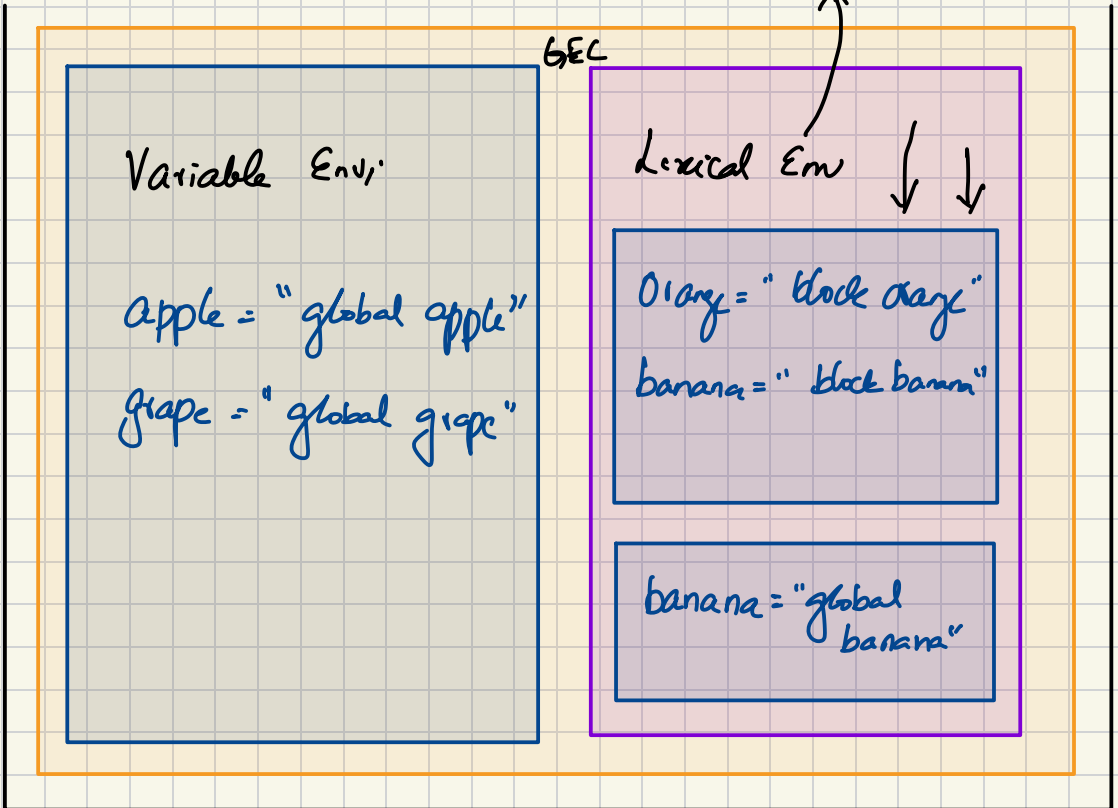 GEC
Variable Env.
apple = "global apple"
grape = "global grape"
Lexical Env
Orange = "block orange"
banana = "block banana"
banana = "global
banana"